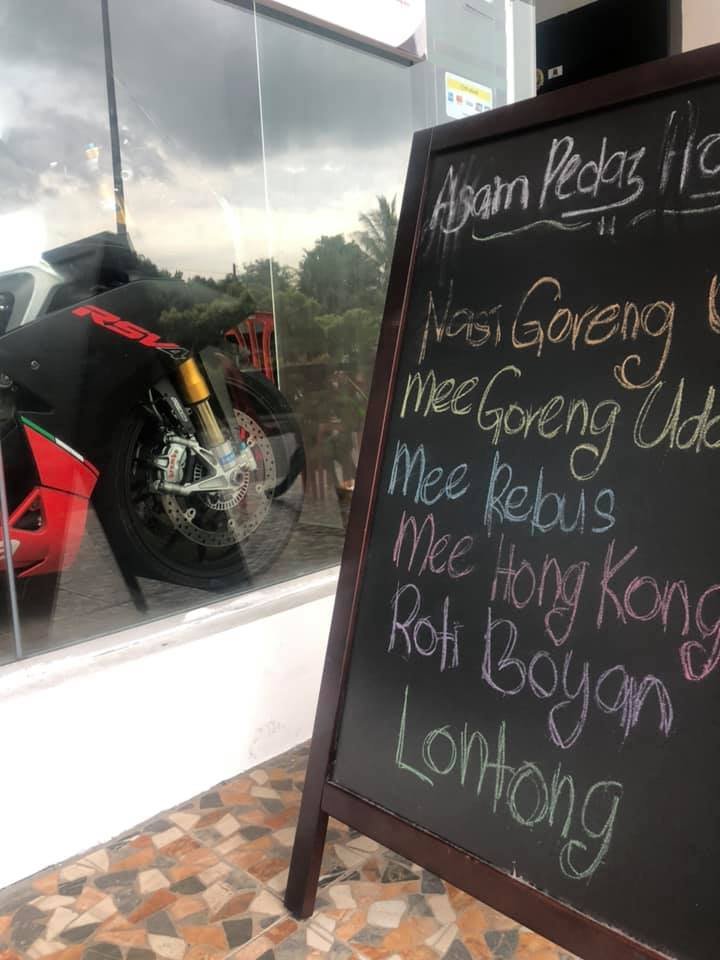 Asam Pedas
Nasi Goreng
Mee Goreng
Mee Rebus
Mee Hong Kong
Roti Boyan
Lontong
RSV4